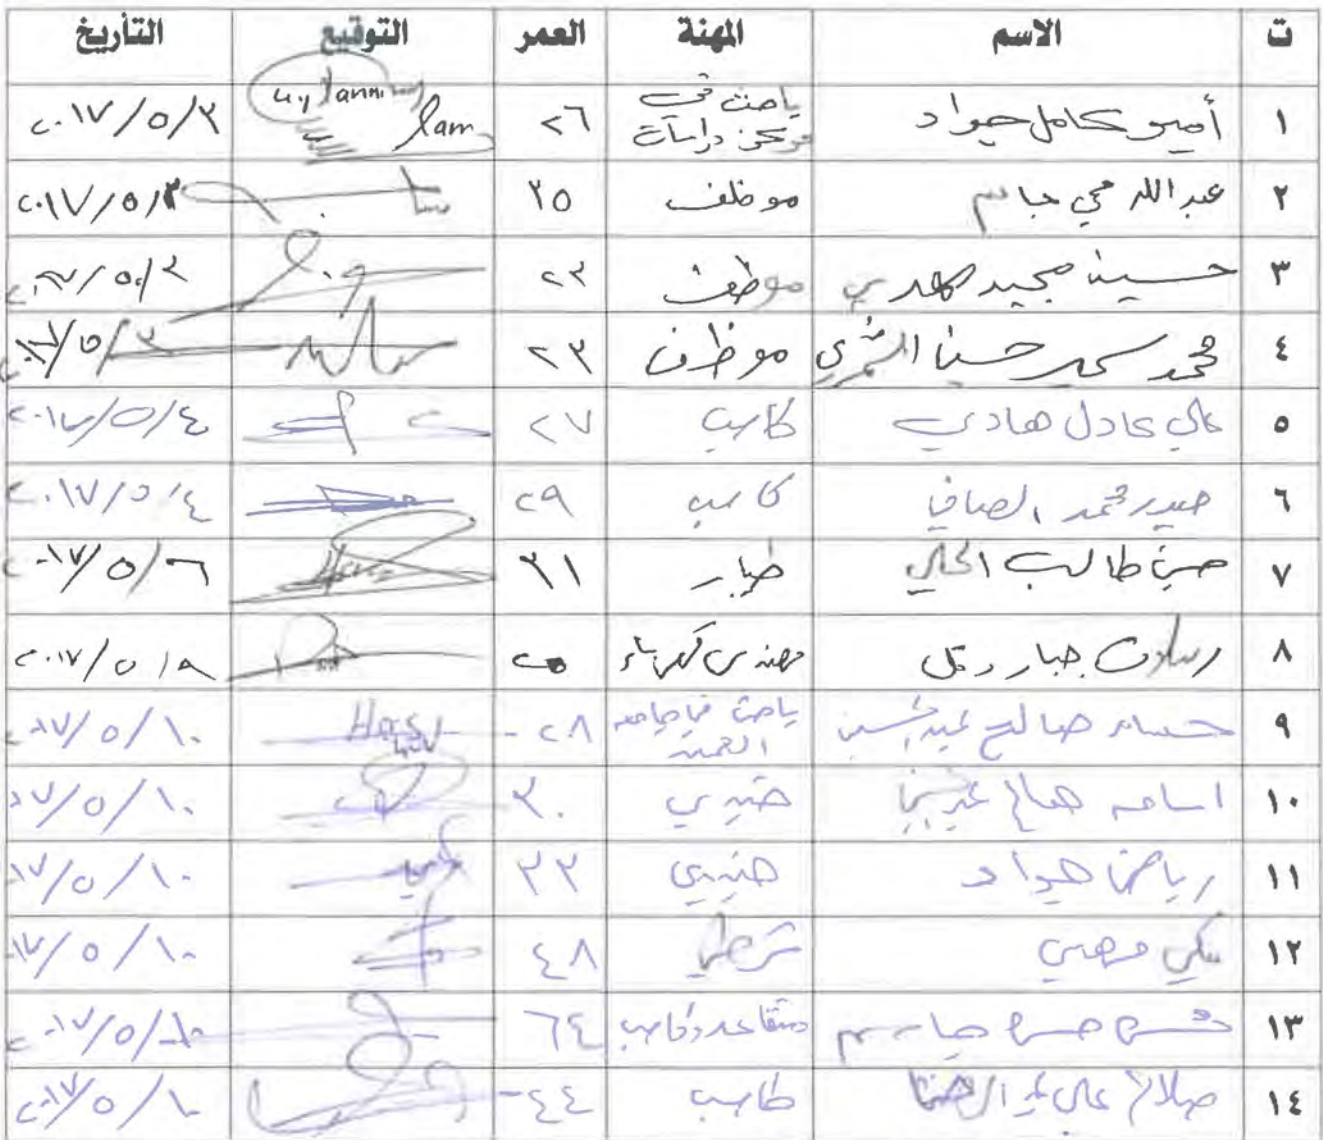 ت الاسم المهنة العمر التوقيع التأريخ
١ أمير كامل جواد باحث في مركز دراسات ٢٦ ٢٠١٧/٥/٢
٢ عبد الله محي جاسم موظف ٢٥ ٢٠١٧/٥/٣
٣ حسين مجيد مهدي موظف ٢٣ ٢٠١٧/٥/٢
٤ محمد سمير حسن الشمري موظف ٢٣ ٢٠١٧/٥/٣
٥ علي عادل هادي كاسب ٢٧ ٢٠١٧/٥/٤
٦ حيدر محمد الصافي كاسب ٢٩ ٢٠١٧/٥/٤
٧ حسن طالب الحلي ٣١ ٢٠١٧/٥/٦
٨ رسلان جبار مهندس كهرباء ٢٥ ٢٠١٧/٥/٩
٩ حسام صالح عبد الحسين باحث في جامعة ٢٨ ٢٠١٧/٥/١٠
١٠ اسامه صالح عبد الحسين ٣٠ ١٧/٥/١٠
١١ رياض جواد ٣٣ ١٧/٥/١٠
١٢ مكي شرطي ٤٨ ١٧/٥/١٠
١٣ جاسم متقاعد وكاسب ٦٤ ٢٠١٧/٥/١٠
١٤ صلاح علي عبد الرضا كاسب ٤٤ ٢٠١٧/٥/١٠